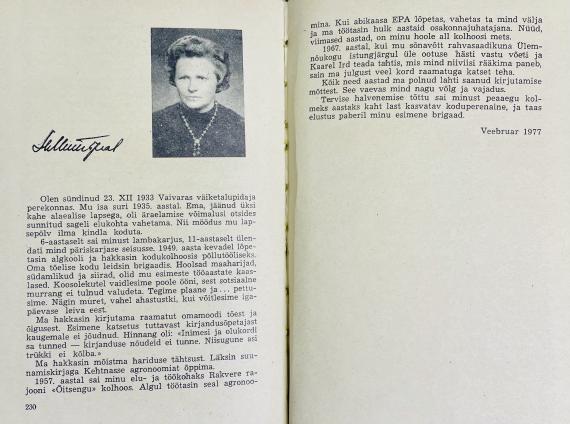 Olen sündinud 23. XII 1933 Vaivaras väiketalupidaja
perekonnas. Mu isa suri 1935. aastal. Ema, jäänud üksi
kahe alaealise lapsega, oli äraelamise võimalusi otsides
sunnitud sageli elukohta vahetama. Nii möödus mu lap-
sepõlv ilma kindla koduta.
6-aastaselt sai minust lambakarjus, 11-aastaselt ülen-
dati mind päriskarjase seisusse. 1949. aasta kevadel lõpe-
tasin algkooli ja hakkasin kodukolhoosis põllutööliseks.
Oma tõelise kodu leidsin brigaadis. Hoolsad maaharijad,
südamlikud ja siirad, olid mu esimeste tööaastate kaas-
lased. Koosolekutel vaidlesime poole ööni, sest sotsiaalne
murrang ei tulnud valudeta. Tegime plaane ja ... pettu-
sime. Nägin muret, vahel ahastustki, kui võitlesime iga-
päevase leiva eest.
Ma hakkasin kirjutama raamatut omamoodi tõest ja
õigusest. Esimene katsetus tuttavast kirjandusõpetajast
kaugemale ei jõudnud. Hinnang oli: «Inimesi ja olukordi
sa tunned — kirjanduse nõudeid ei tunne. Niisugune asi
trükki ei kõlba.»
Ma hakkasin mõistma hariduse tähtsust. Läksin suu-
namiskirjaga Kehtnasse agronoomiat õppima.
1957. aastal sai minu elu- ja töökohaks Rakvere ra-
jooni «Õitsengu» kolhoos. Algul töötasin seal agronoo-
230
mina. Kui abikaasa EPA lõpetas, vahetas ta mind välja
ja ma töötasin hulk aastaid osakonnajuhatajana. Nüüd,
viimased aastad, on minu hoole all kolhoosi mets.
1967. aastal, kui mu sõnavõtt rahvasaadikuna Ülem-
nõukogu istungjärgul üle ootuse hästi vastu võeti ja
Kaarel Ird teada tahtis, mis mind niiviisi rääkima paneb,
sain ma julgust veel kord raamatuga katset teha.
Kõik need aastad ma polnud lahti saanud kirjutamise
mõttest. See vaevas mind nagu võlg ja vajadus.
Tervise halvenemise tõttu sai minust peaaegu kol-
meks aastaks kaht last kasvatav koduperenaine, ja taas
elustus paberil minu esimene brigaad.
Veebruar 1977